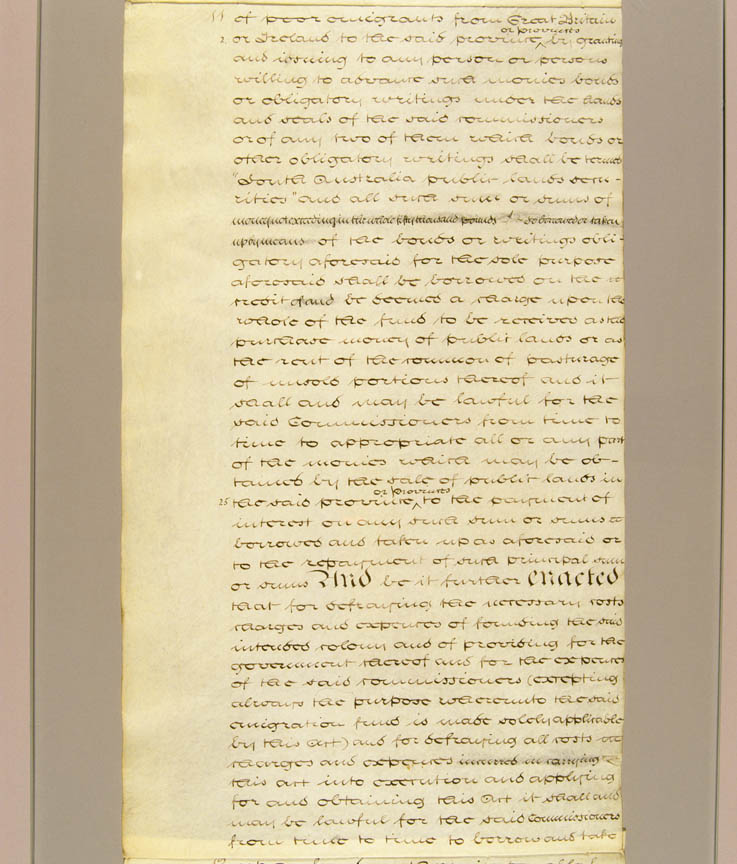 of poor emigrants from Great Britain
or provinces
2. or Ireland to the said province, by granting
and issuing to any person or persons
willing to advance such monies bonds
or obligatory writings under the hands
and seals of the said commissioners
or of any two of them which bonds or
other obligatory writings shall be termed
"South Australia public lands secu-
rities" and all such sum or sums of
money not exceeding in the whole fifty thousand pounds so borrowed or taken
up by means of the bonds or writings obli-
gatory aforesaid for the sole purpose
aforesaid shall be borrowed on the
credit of and be deemed a charge upon the
whole of the fund to be received as the
purchase money of public lands or as
the rent of the common of pasturage
of unsold portions thereof and it
shall and may be lawful for the
said Commissioners from time to
time to appropriate all or any part
of the monies which may be ob-
tained by the sale of public lands in
or provinces
25 the said province, to the payment of
interest on any such sum or sums
borrowed and taken up as aforesaid or
to the repayment of such principal sum
or sums And be it further enacted
that for defraying the necessary costs
charges and expences of founding the said
intended colony and of providing for the
government thereof and for the expences
of the said commissioners (excepting
always the purpose whereunto the said
emigration fund is made solely applicable
by this Act) and for defraying all costs
charges and expences incurred in carrying
this act into execution and applying
for and obtaining this Act it shall and
may be lawful for the said Commissioners
from time to time to borrow and take